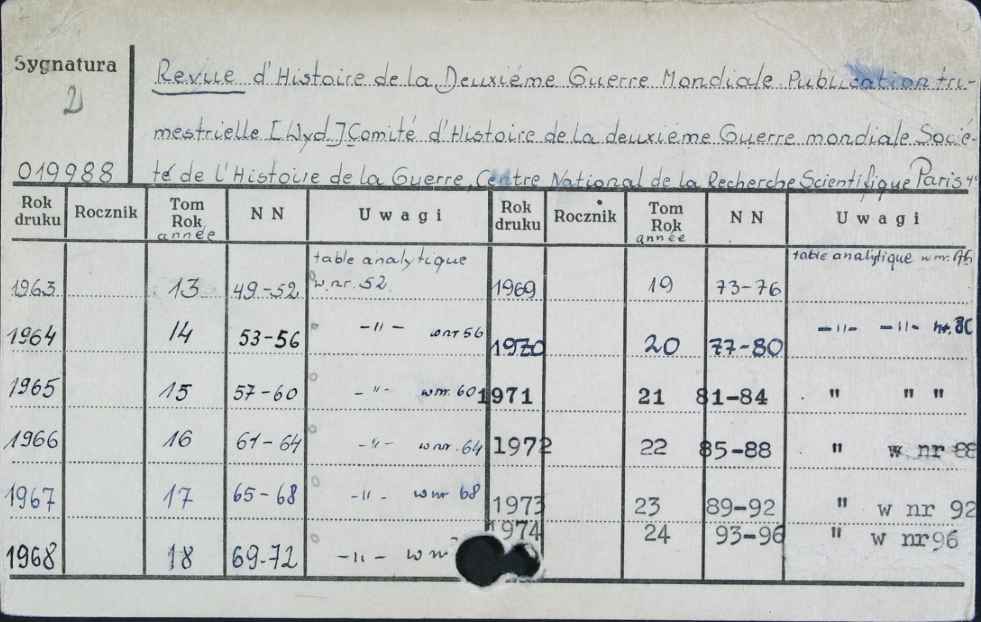 Sygnatura
Revue d'Histoire de la Deuxième Guerre Mondiale Publication tri-
mestrielle [Wyd.] Comité d'Histoire de la deuxième Guerre mondiale Socié-
019988 té de l'Histoire de la Guerre, Centre National de la Recherche Scientifique Paris
Rok druku Rocznik Tom Rok année N N Uwagi Rok druku Rocznik Tom Rok année N N Uwagi
1963 13 49-52 table analytique w nr. 52 1969 19 73-76 table analytique w nr. 76
1964 14 53-56 -"- w nr 56 1970 20 77-80 -"- -"- nr. 80
1965 15 57-60 -"- w nr. 60 1971 21 81-84 " " "
1966 16 61-64 -"- w nr. 64 1972 22 85-88 " w nr 88
1967 17 65-68 -"- w nr 68 1973 23 89-92 " w nr 92
1974 24 93-96 " w nr 96
1968 18 69-72 -"- w nr